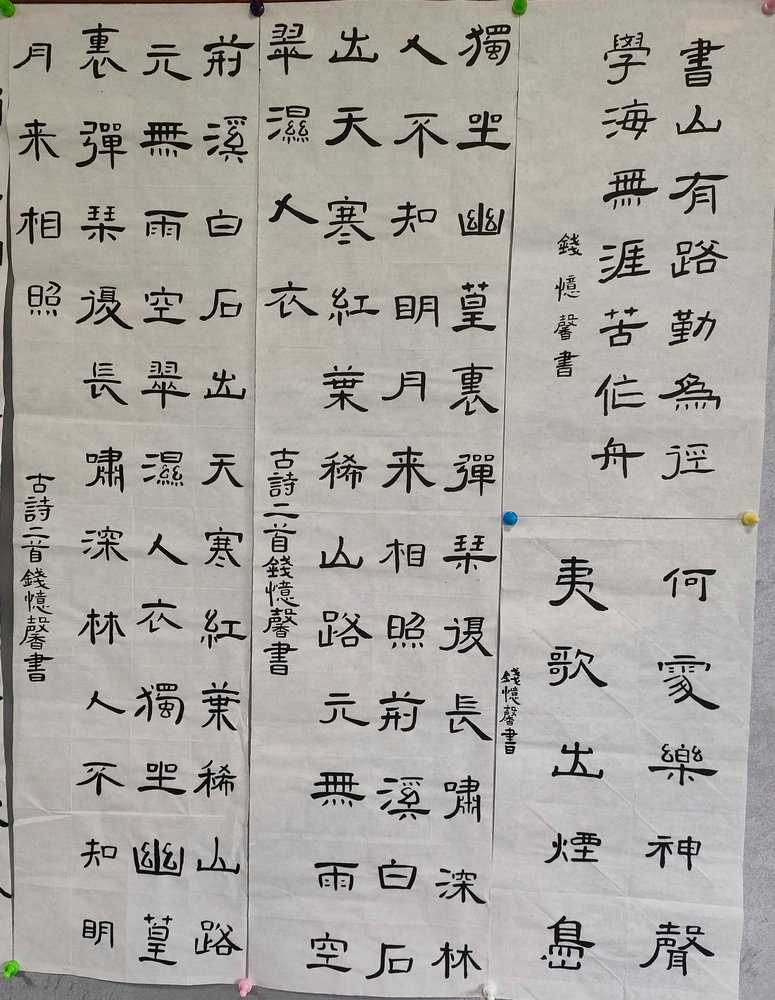 書山有路勤為徑
學海無涯苦作舟
錢憶馨書
何處樂神聲
夷歌出煙島
錢憶馨書
獨坐幽篁裏彈琹復長嘯深林
人不知明月来相照荊溪白石
出天寒紅葉稀山路元無雨空
翠濕人衣
古詩二首錢憶馨書
荊溪白石出天寒紅葉稀山路
元無雨空翠濕人衣獨坐幽篁
裏彈琹復長嘯深林人不知明
月来相照
古詩二首錢憶馨書